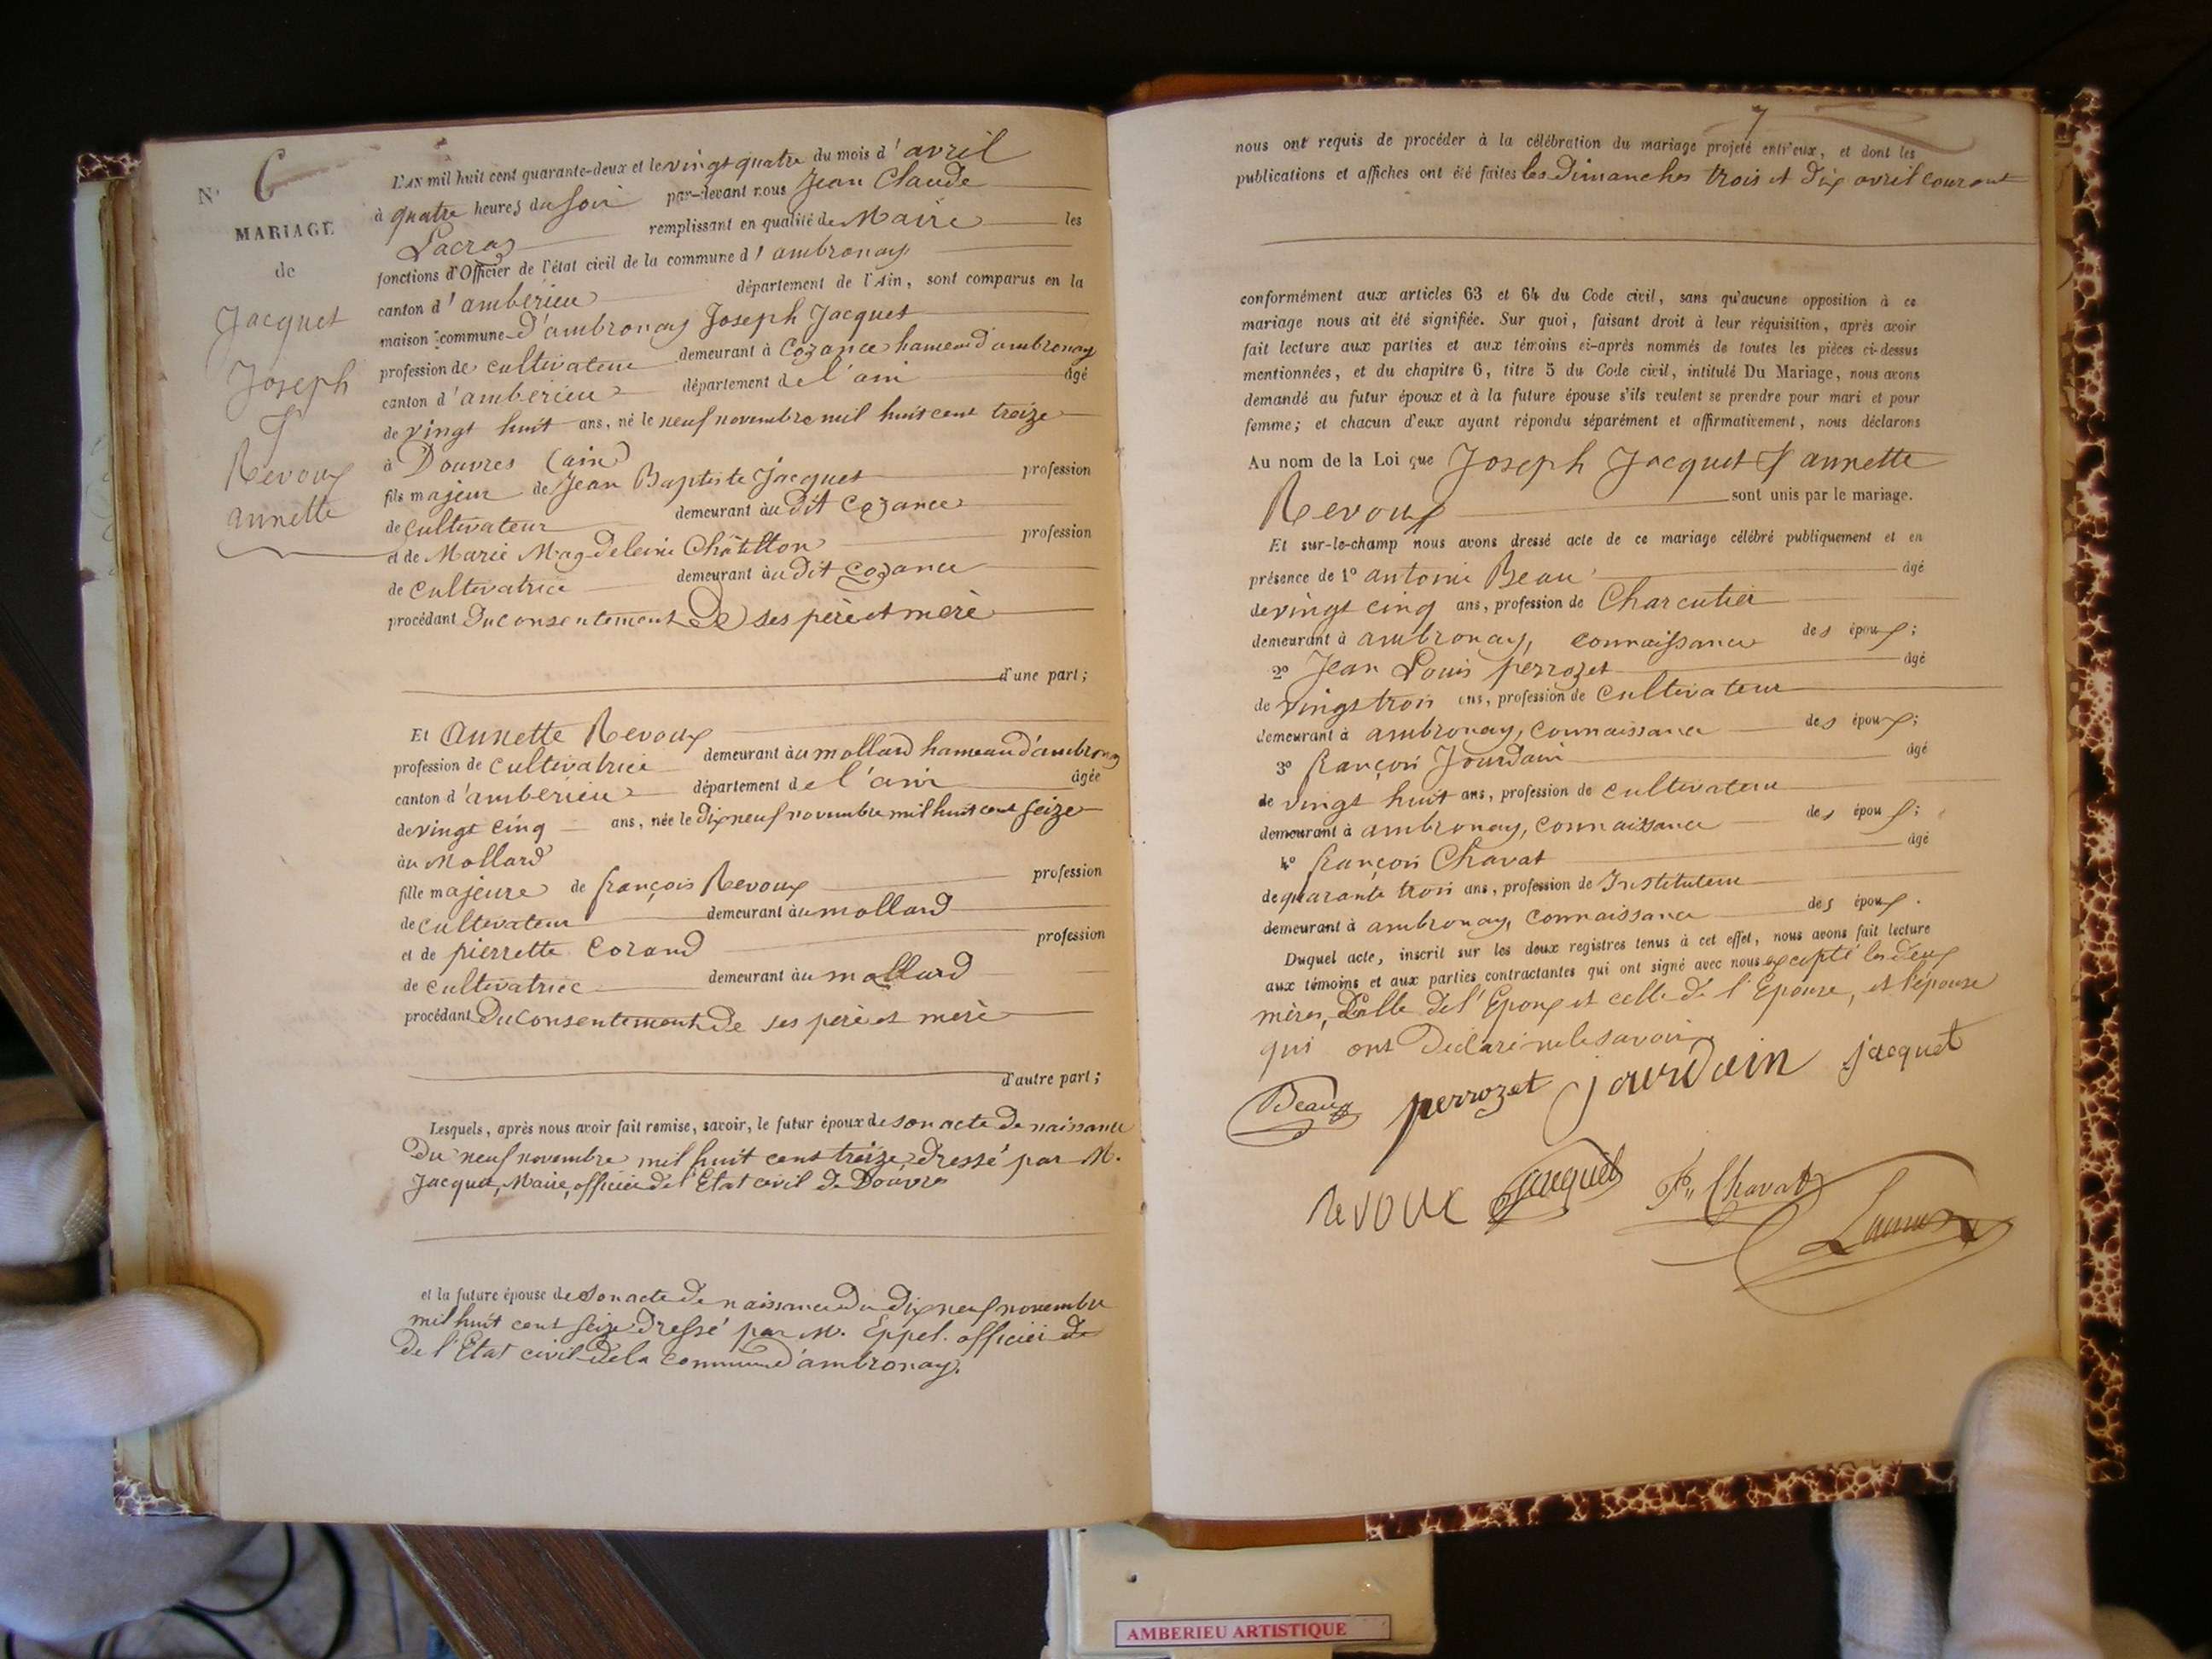 N° 6
MARIAGE
de
Jacquet
Joseph
&
Revoux
annette
L'AN mil huit cent quarante-deux et le vingt quatre du mois d'avril
à quatre heures du soir par-devant nous Jean Claude
Lacras remplissant en qualité de Maire les
fonctions d'Officier de l'état civil de la commune d'ambronay
canton d'ambérieu département de l'Ain, sont comparus en la
maison commune d'ambronay Joseph Jacquet
profession de cultivateur demeurant à Cozance hameau d'ambronay
canton d'ambérieu département de l'ain âgé
de vingt huit ans, né le neuf novembre mil huit cent treize
à Douvres (ain)
fils majeur de Jean Baptiste Jacquet profession
de cultivateur demeurant au dit Cozance
et de Marie Magdeleine Châtillon profession
de cultivatrice demeurant au dit Cozance
procédant du consentement de ses père et mère
d'une part;
Et Annette Revoux
profession de cultivatrice demeurant au mollard hameau d'ambronay
canton d'ambérieu département de l'ain âgée
de vingt cinq ans, née le dix neuf novembre mil huit cent seize
au Mollard
fille majeure de françois Revoux profession
de cultivateur demeurant au mollard
et de pierrette Corand profession
de cultivatrice demeurant au mollard
procédant du consentement de ses père et mère
d'autre part;
Lesquels, après nous avoir fait remise, savoir, le futur époux de son acte de naissance
du neuf novembre mil huit cent treize dressé par M.
Jacquet, Maire, officier de l'Etat civil de Douvres
et la future épouse de son acte de naissance du dix neuf novembre
mil huit cent seize dressé par M. Eppel. officier de
de l'Etat civil de la commune d'ambronay.
7
nous ont requis de procéder à la célébration du mariage projeté entr'eux, et dont les
publications et affiches ont été faites les Dimanches trois et dix avril courant
conformément aux articles 63 et 64 du Code civil, sans qu'aucune opposition à ce
mariage nous ait été signifiée. Sur quoi, faisant droit à leur réquisition, après avoir
fait lecture aux parties et aux témoins ci-après nommés de toutes les pièces ci-dessus
mentionnées, et du chapitre 6, titre 5 du Code civil, intitulé Du Mariage, nous avons
demandé au futur époux et à la future épouse s'ils veulent se prendre pour mari et pour
femme; et chacun d'eux ayant répondu séparément et affirmativement, nous déclarons
Au nom de la Loi que Joseph Jacquet & annette
Revoux sont unis par le mariage.
Et sur-le-champ nous avons dressé acte de ce mariage célébré publiquement et en
présence de 1° antoine Beau âgé
de vingt cinq ans, profession de Charcutier
demeurant à ambronay, connaissance des époux;
2° Jean Louis perrozet âgé
de vingt trois ans, profession de cultivateur
demeurant à ambronay, connaissance des époux;
3° françois Jourdain âgé
de vingt huit ans, profession de cultivateur
demeurant à ambronay, connaissance des époux;
4° françois Chavat âgé
de quarante trois ans, profession de Instituteur
demeurant à ambronay, connaissance des époux.
Duquel acte, inscrit sur les deux registres tenus à cet effet, nous avons fait lecture
aux témoins et aux parties contractantes qui ont signé avec nous excepté les deux
mères, Celle de l'Epoux et celle de l'Epouse, et l'épouse
qui ont déclaré ne le savoir.
Beau perrozet jourdain jacquet
Revoux Jacquet Fs Chavat
Lacras
AMBERIEU ARTISTIQUE